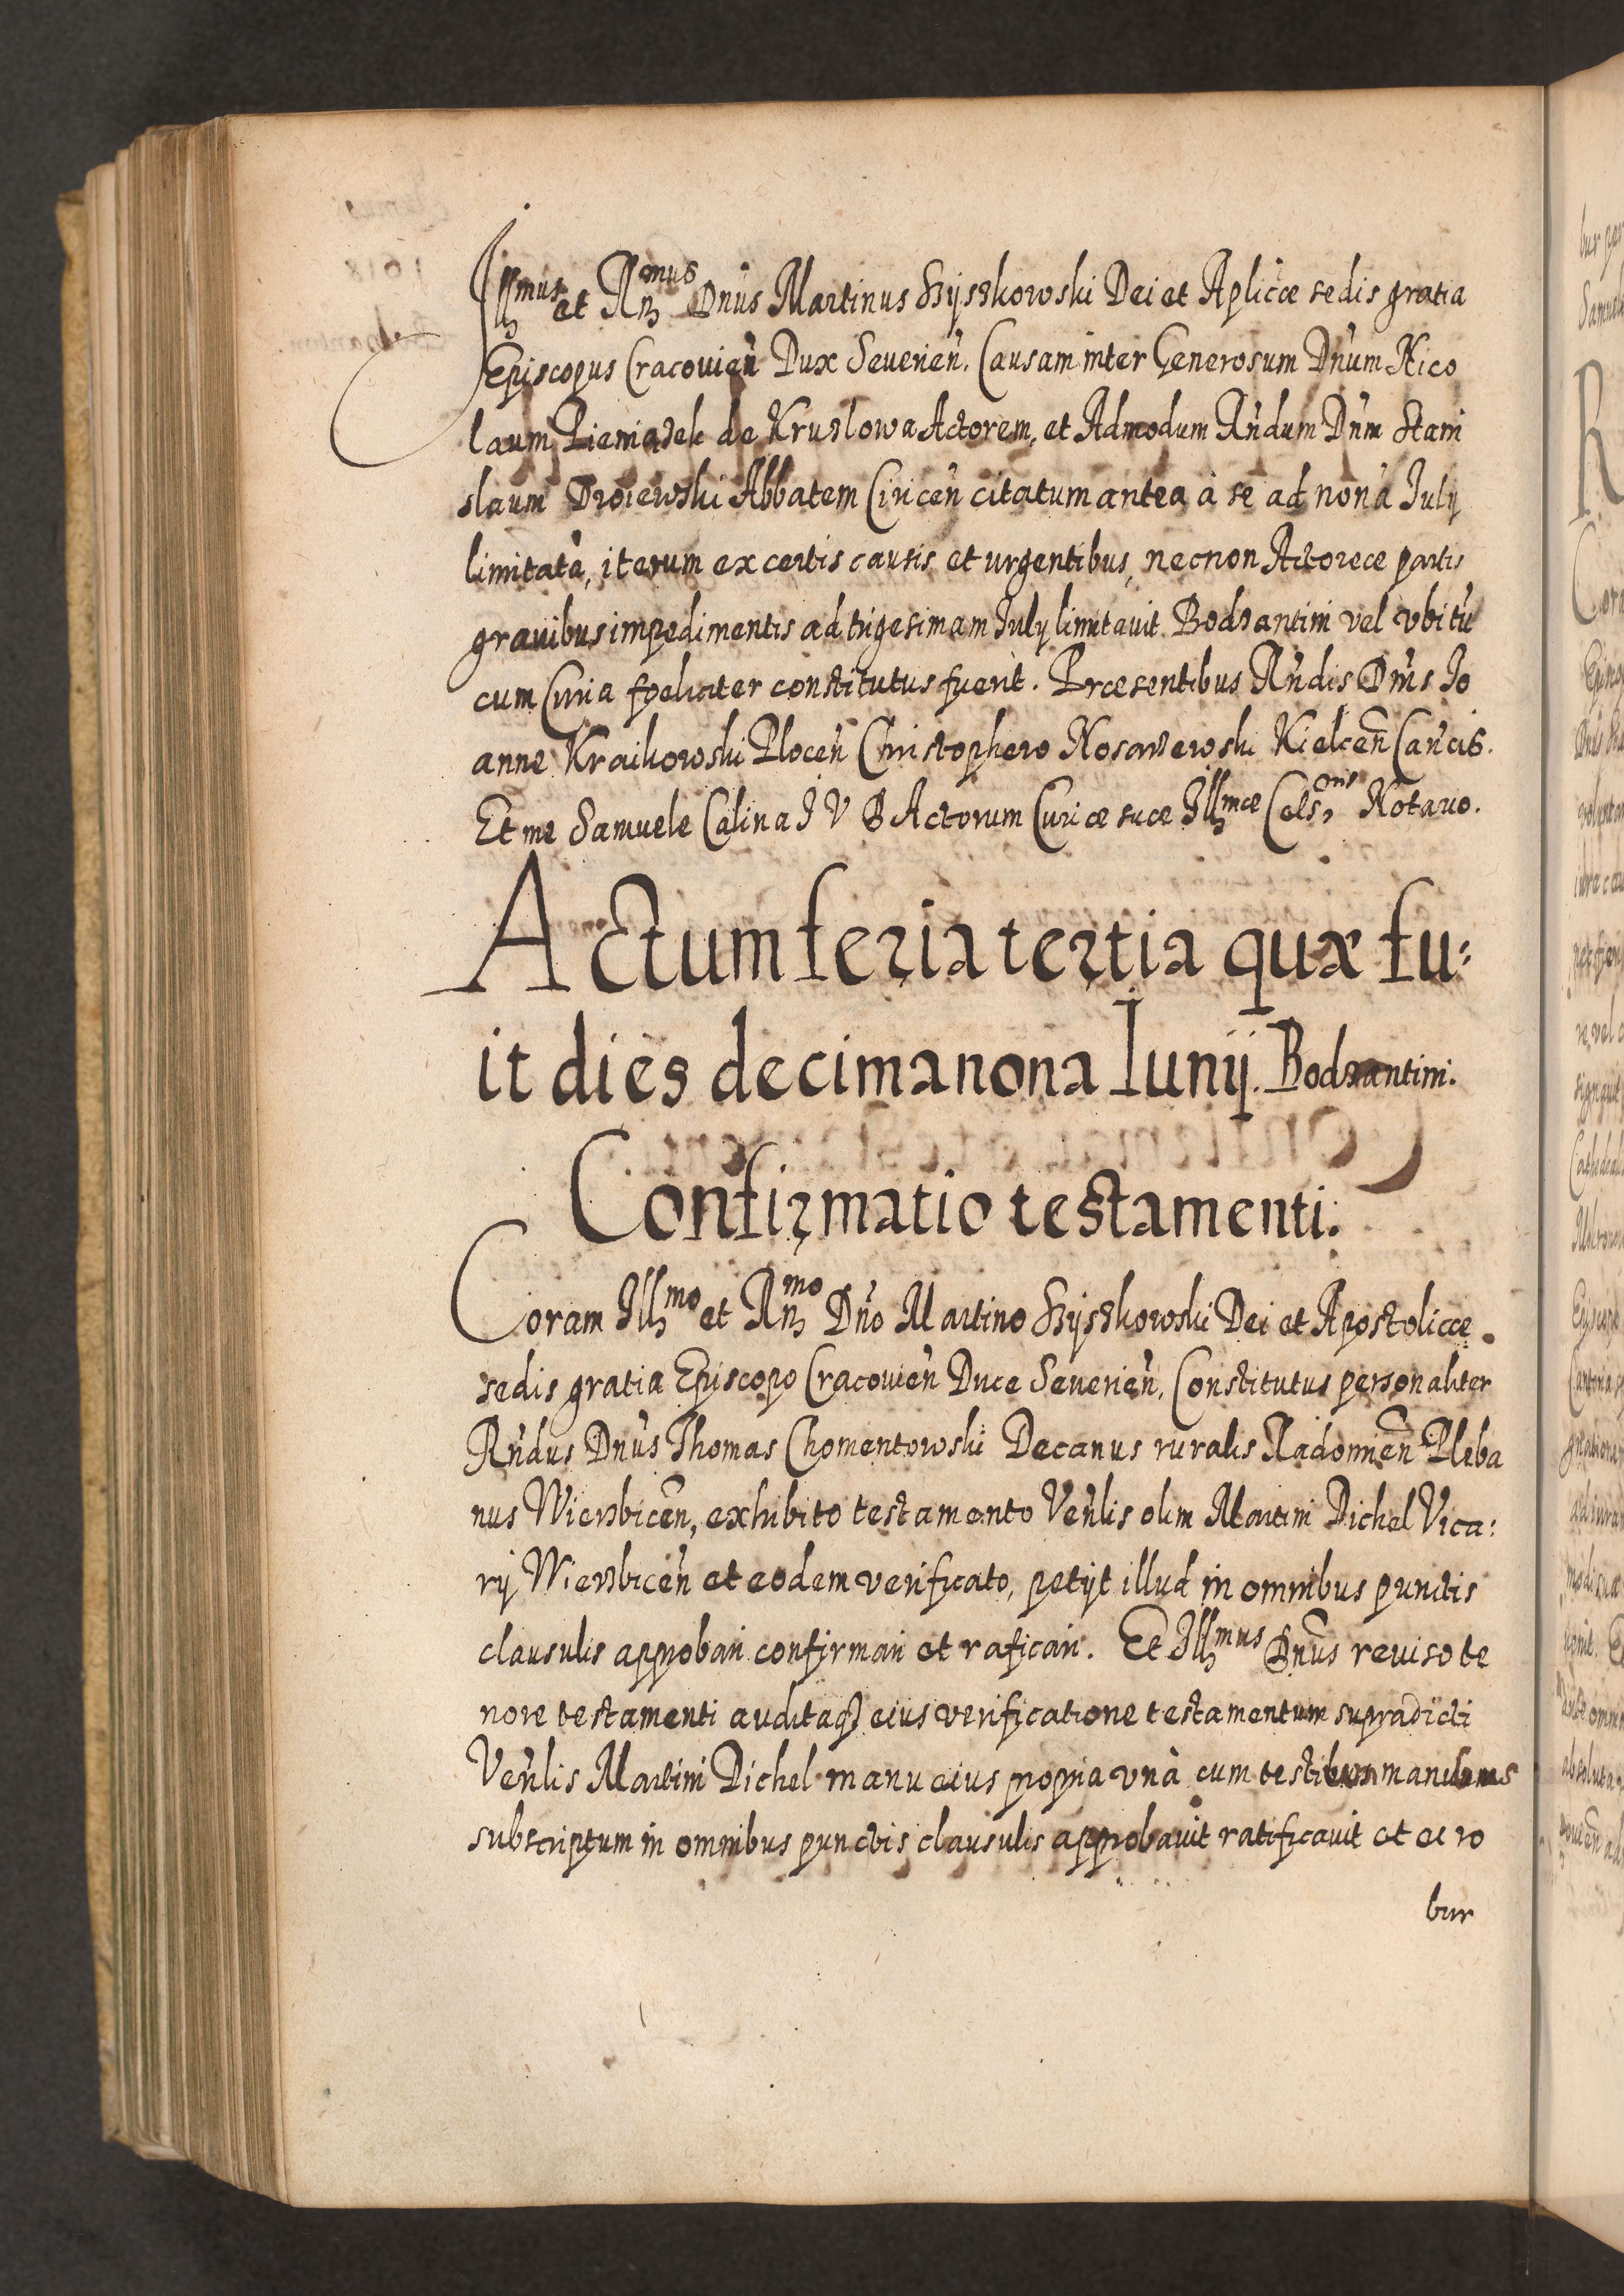 Illmus et Rmus Dnus Martinus Szyszkowski Dei et Aplicæ sedis gratia
Episcopus Cracovien Dux Severien. Causam inter Generosum Dnum Nico
laum Pieniazek de Kruzlowa Actorem, et Admodum Rndum Dnm Stani
slaum Droiewski Abbatem Ciricen citatum antea à se ad nonã July
limitatã, iterum ex certis causis et urgentibus, necnon Actoreæ partis
gravibus impedimentis ad trigesimam July limitavit Bodzantini vel ubi tũ
cum Curia fœliciter constitutus fuerit. Præsentibus Rndis Dnis Jo
anne Kraikowski Plocen Christophero Nosarzewski Kielcen Cancis.
Et me Samuele Calina J V D Actorum Curiæ suæ Illmæ Celsnis Notario.
Actum feria tertia quæ fu:
it dies decimanona Iunij. Bodzantini.
Confirmatio testamenti.
Coram Illmo et Rmo Dno Martino Szyszkowski Dei et Apostolicæ
sedis gratia Episcopo Cracovien Duce Severien. Constitutus personaliter
Rndus Dnus Thomas Chomentowski Decanus ruralis Radomien Pleba
nus Wierzbicen, exhibito testamento Venlis olim Martini Dichel Vica:
rij Wierzbicen et eodem verificato, petijt illud in omnibus punctis
clausulis approbari confirmari et raficari. Et Illmus Dnus reviso te
nore testamenti auditaq3 eius verificatione testamentum supradicti
Venlis Martini Dichel manu eius propria unà cum testibus manibus
subscriptum in omnibus punctis clausulis approbavit ratificavit et ei ro
bur